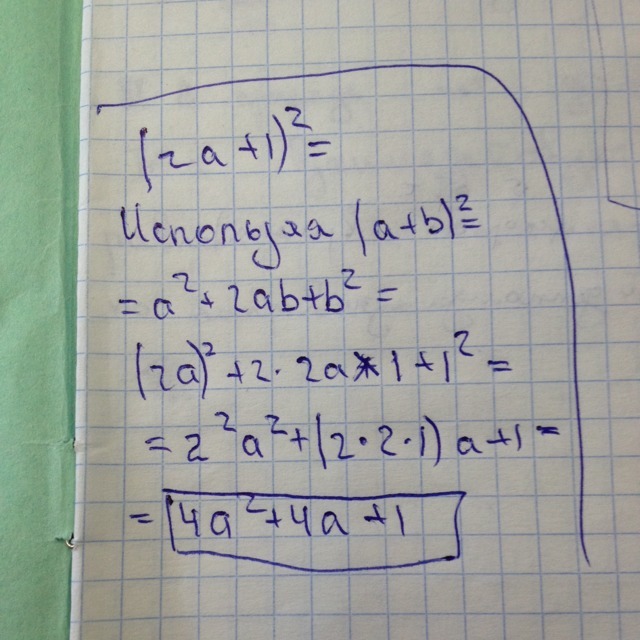 (2a+1)²=
Используя (a+b)²=
=a²+2ab+b²=
(2a)²+2·2a*1+1²=
=2²a²+(2·2·1)a+1=
=4a²+4a+1